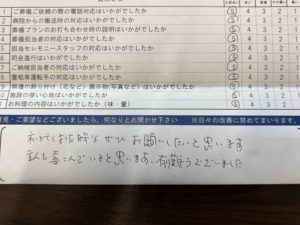 1 ご葬儀ご依頼の際の電話対応はいかがでしたか ⑤ 4 3 2 1
2 病院からの搬送時の対応はいかがでしたか ⑤ 4 3 2 1
3 葬儀プランのお打ち合わせ時の説明はいかがでしたか ⑤ 4 3 2 1
4 葬儀担当者の対応はいかがでしたか ⑤ 4 3 2 1
5 担当セレモニースタッフの対応はいかがでしたか ⑤ 4 3 2 1
6 司会進行はいかがでしたか ⑤ 4 3 2 1
7 ご納棺担当者の対応はいかがでしたか ⑤ 4 3 2 1
8 霊柩車運転手の対応はいかがでしたか ⑤ 4 3 2 1
9 祭壇の飾り付け(花など)展示物(写真など)はいかがでしたか ⑤ 4 3 2 1
施設の使い心地はいかがでしたか ⑤ 4 3 2 1
お料理の内容はいかがでしたか(味・量) ⑤ 4 3 2 1
意見・ご要望などございましたら、何なりとお聞かせ下さい ※日々の改善に努めてまいります。
ぜひ お願いしたいと思います
喜んでいると思います。有難うございました